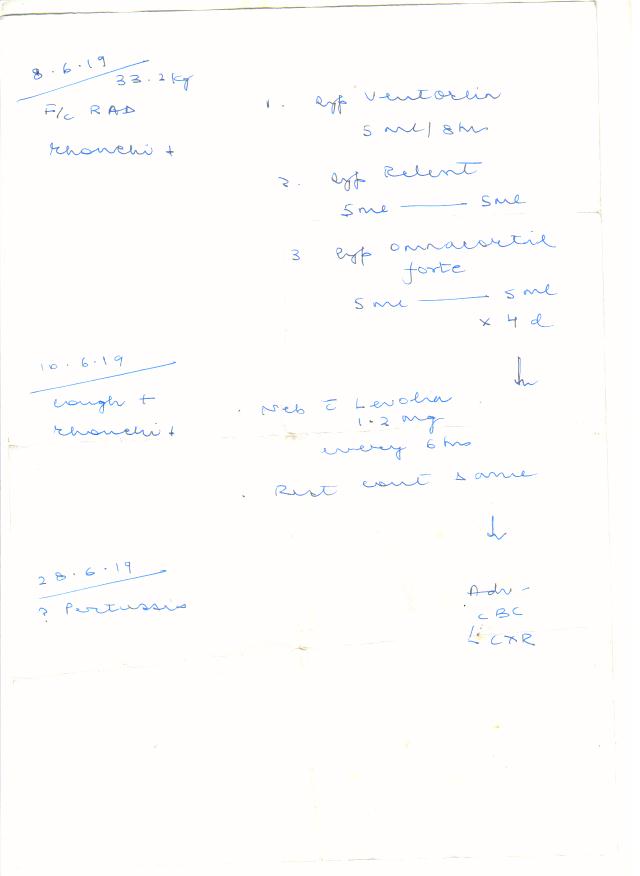 8.6.19
33.2kg
F/c RAD
rhonchi +
1. Syp Ventorlin
5 ml / 8hrs
2. Syp Relent
5ml — 5ml
3 Syp Omnacortil
forte
5ml — 5ml
x 4 d
↓
10.6.19
cough +
rhonchi +
. Neb c̄ Levolin
1.2 mg
every 6 hrs
. Rest cont same
↓
28.6.19
? Pertussis
Adv -
CBC
CXR